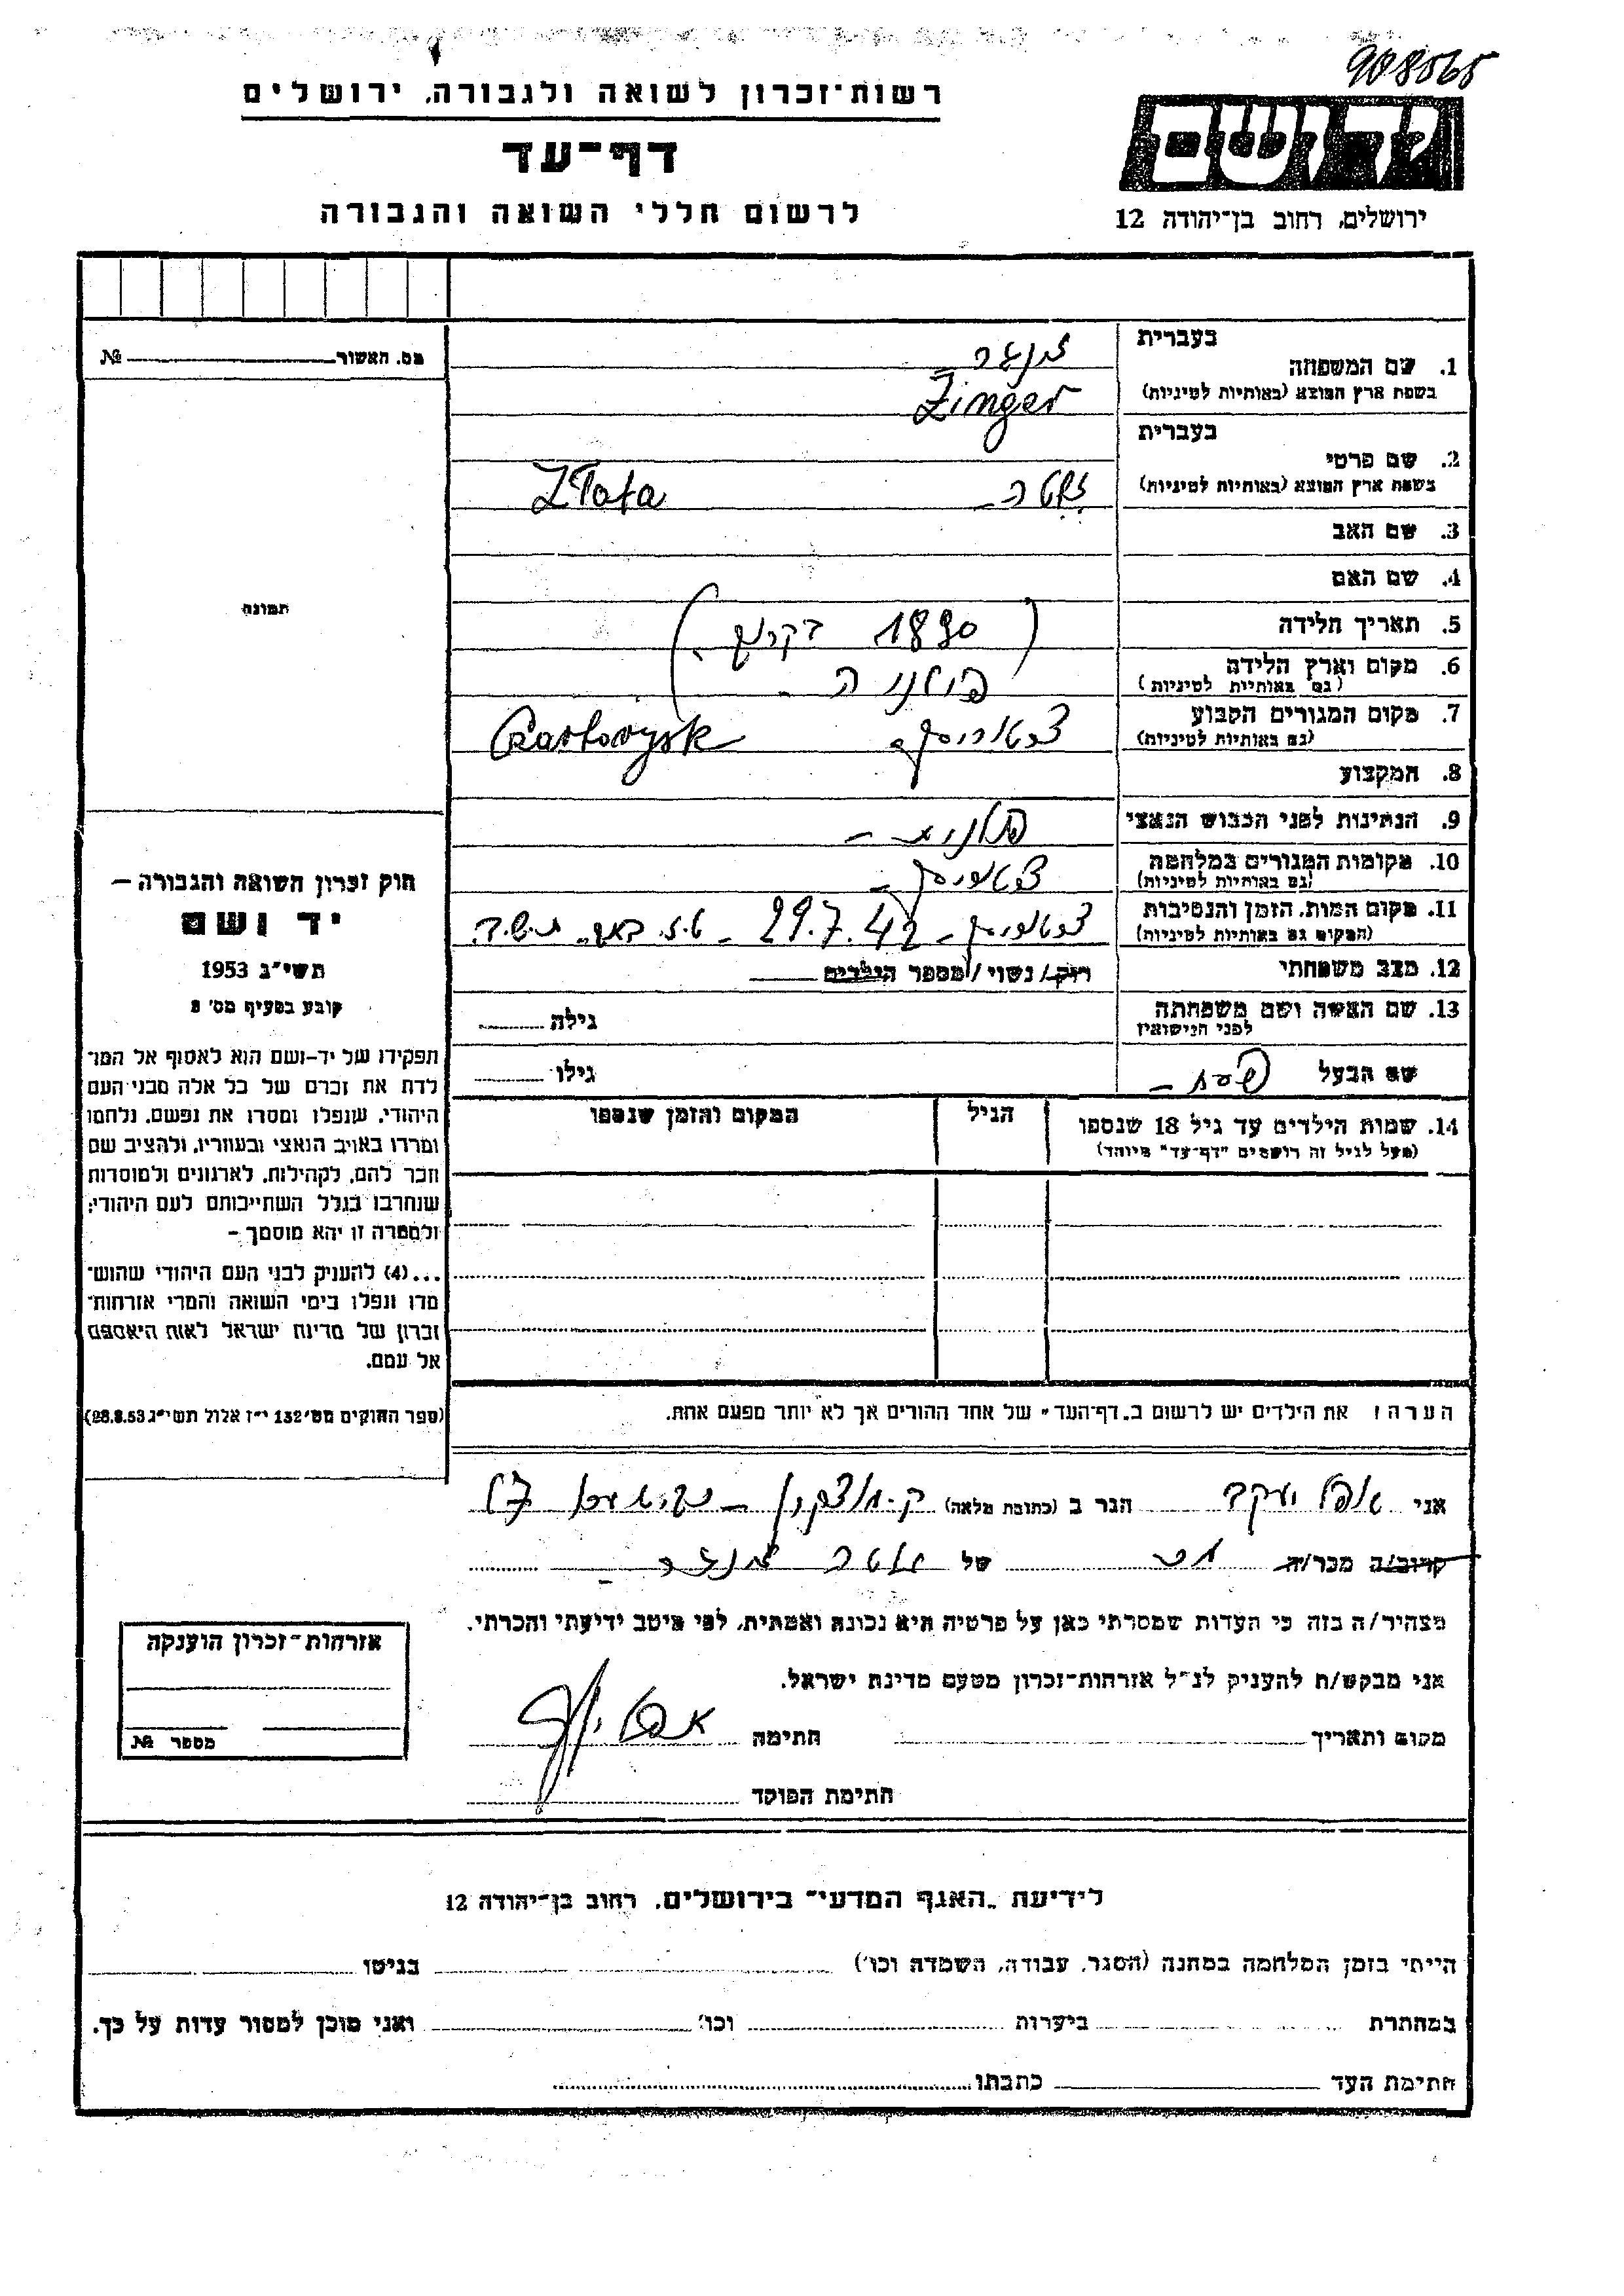 908565
רשות־זכרון לשואה ולגבורה, ירושלים
דף־עד
לרשום חללי השואה והגבורה
יד ושם
ירושלים, רחוב בן־יהודה 12
מס. האשור № 
תמונה
חוק זכרון השואה והגבורה –
יד ושם
תשי״ג 1953
קובע בסעיף מס׳ 2
תפקידו של יד-ושם הוא לאסוף אל המו־
לדת את זכרם של כל אלה מבני העם
היהודי, שנפלו ומסרו את נפשם, נלחמו
ומרדו באויב הנאצי ובעוזריו, ולהציב שם
וזכר להם, לקהילות, לארגונים ולמוסדות
שנחרבו בגלל השתייכותם לעם היהודי;
ולמטרה זו יהא מוסמך –
...(4) להעניק לבני העם היהודי שהוש־
מדו ונפלו בימי השואה והמרי אזרחות־
זכרון של מדינת ישראל לאות היאספם
אל עמם.
(ספר החוקים מס׳ 132 י״ז אלול תשי״ג 28.8.53)
בעברית זינגר
1. שם המשפחה
בשפת ארץ המוצא (באותיות לטיניות) Zinger
בעברית
2. שם פרטי
בשפת ארץ המוצא (באותיות לטיניות) זלטה Zlata
3. שם האב
4. שם האם
5. תאריך הלידה (1890 בקרוב)
6. מקום וארץ הלידה
(גם באותיות לטיניות) פולניה
7. מקום המגורים הקבוע
(גם באותיות לטיניות) Czartorysk
8. המקצוע
9. הנתינות לפני הכבוש הנאצי פולנית –
10. מקומות המגורים במלחמה
(גם באותיות לטיניות)
11. מקום המות, הזמן והנסיבות
(המקום גם באותיות לטיניות) – 29.7.42 – ט.ז. באב תש״ב
12. מצב משפחתי רוק/נשוי/מספר הילדים
13. שם האשה ושם משפחתה
לפני הנישואין גילה
שם הבעל גילו
14. שמות הילדים עד גיל 18 שנספו
(מעל לגיל זה רושמים "דף־עד" מיוחד)
הגיל
המקום והזמן שנספו
הערה: את הילדים יש לרשום ב„דף־העד" של אחד ההורים אך לא יותר מפעם אחת.
אני יעקב הגר ב (כתובת מלאה) ק. מוצקין – 17
קרוב/ה מכר/ה של זלטה זינגר
מצהיר/ה בזה כי העדות שמסרתי כאן על פרטיה היא נכונה ואמתית, לפי מיטב ידיעתי והכרתי.
אני מבקש/ת להעניק לנ״ל אזרחות־זכרון מטעם מדינת ישראל.
מקום ותאריך חתימה
חתימת הפוקד
אזרחות־זכרון הוענקה
מספר №
לידיעת „האגף המדעי" בירושלים, רחוב בן־יהודה 12
הייתי בזמן המלחמה במחנה (הסגר, עבודה, השמדה וכו׳) בגיטו
במחתרת ביערות וכו׳ ואני מוכן למסור עדות על כך.
חתימת העד כתבתו